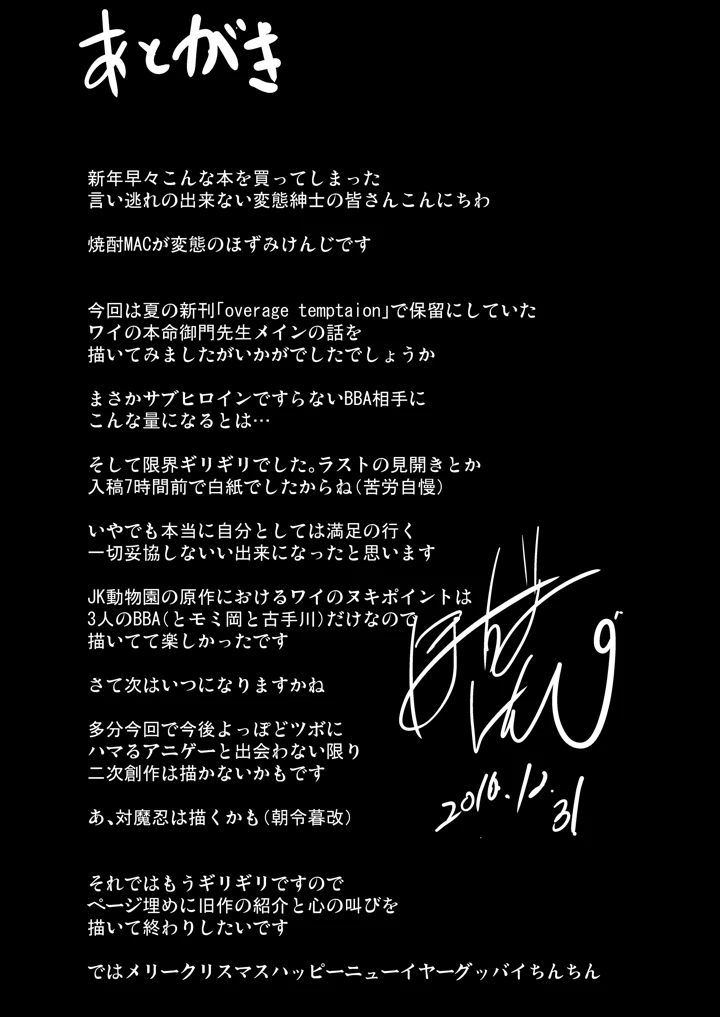 あとがき
新年早々こんな本を買ってしまった
言い逃れの出来ない変態紳士の皆さんこんにちわ
焼酎MACが変態のほずみけんじです
今回は夏の新刊｢overage temptaion｣で保留にしていた
ワイの本命御門先生メインの話を
描いてみましたがいかがでしたでしょうか
まさかサブヒロインですらないBBA相手に
こんな量になるとは…
そして限界ギリギリでした。ラストの見開きとか
入稿7時間前で白紙でしたからね(苦労自慢)
いやでも本当に自分としては満足の行く
一切妥協しないい出来になったと思います
JK動物園の原作におけるワイのヌキポイントは
3人のBBA(とモミ岡と古手川)だけなので
描いてて楽しかったです
さて次はいつになりますかね
多分今回で今後よっぽどツボに
ハマるアニゲーと出会わない限り
二次創作は描かないかもです
あ、対魔忍は描くかも(朝令暮改)
それではもうギリギリですので
ページ埋めに旧作の紹介と心の叫びを
描いて終わりしたいです
ではメリークリスマスハッピーニューイヤーグッバイちんちん
2016.12.31